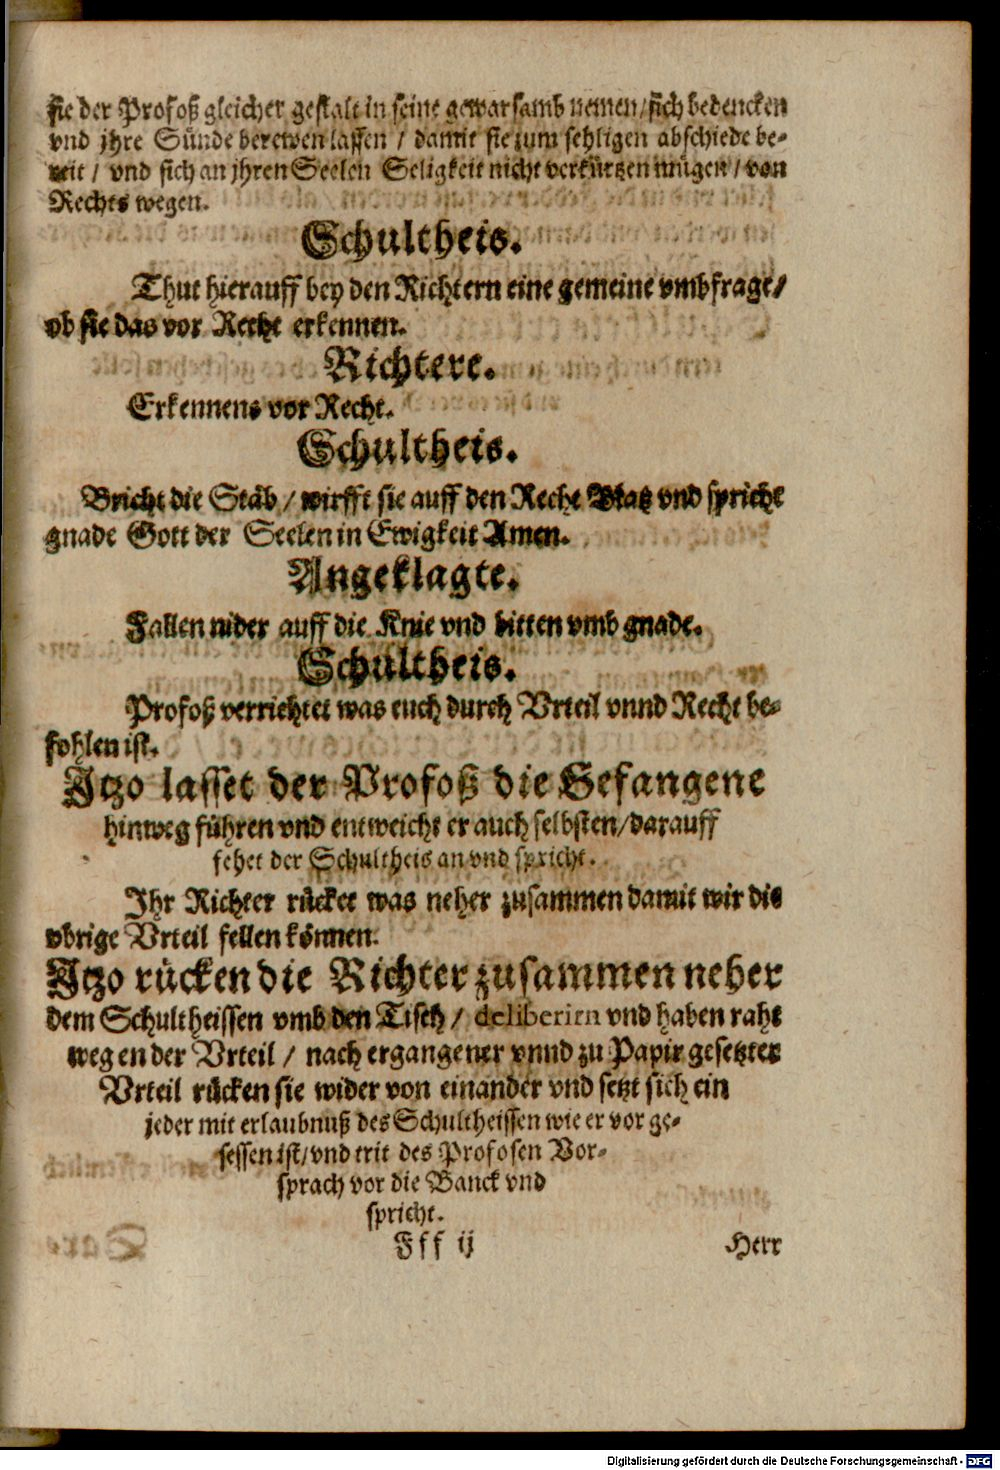 sie der Profoß gleicher gestalt in seine gewarsamb nemen/ sich bedencken
vnd jhre Sünde berewen lassen / damit sie zum sehligen abschiede be-
reit / vnd sich an jhren Seelen Seligkeit nicht verkürtzen mügen / von
Rechts wegen.
Schultheis.
Thut hierauff bey den Richtern eine gemeine vmbfrage/
ob sie das vor Recht erkennen.
Richtere.
Erkennens vor Recht.
Schultheis.
Bricht die Stäb / wirfft sie auff den Recht Platz vnd spricht
gnade Gott der Seelen in Ewigkeit Amen.
Angeklagte.
Fallen nider auff die Knie vnd bitten vmb gnade.
Schultheis.
Profoß verrichtet was euch durch Vrteil vnnd Recht be-
fohlen ist.
Itzo lasset der Profoß die Gefangene
hinweg führen vnd entweicht er auch selbsten/ darauff
fehet der Schultheis an vnd spricht.
Ihr Richter rücket was neher zusammen damit wir die
vbrige Vrteil fellen können.
Itzo rücken die Richter zusammen neher
dem Schultheissen vmb den Tisch / deliberirn vnd haben raht
wegen der Vrteil / nach ergangener vnnd zu Papir gesetzter
Vrteil rücken sie wider von einander vnd setzt sich ein
jeder mit erlaubnuß des Schultheissen wie er vor ge-
sessen ist/ vnd trit des Profosen Vor-
sprach vor die Banck vnd
spricht.
Fff ij Herr
Digitalisierung gefördert durch die Deutsche Forschungsgemeinschaft - DFG